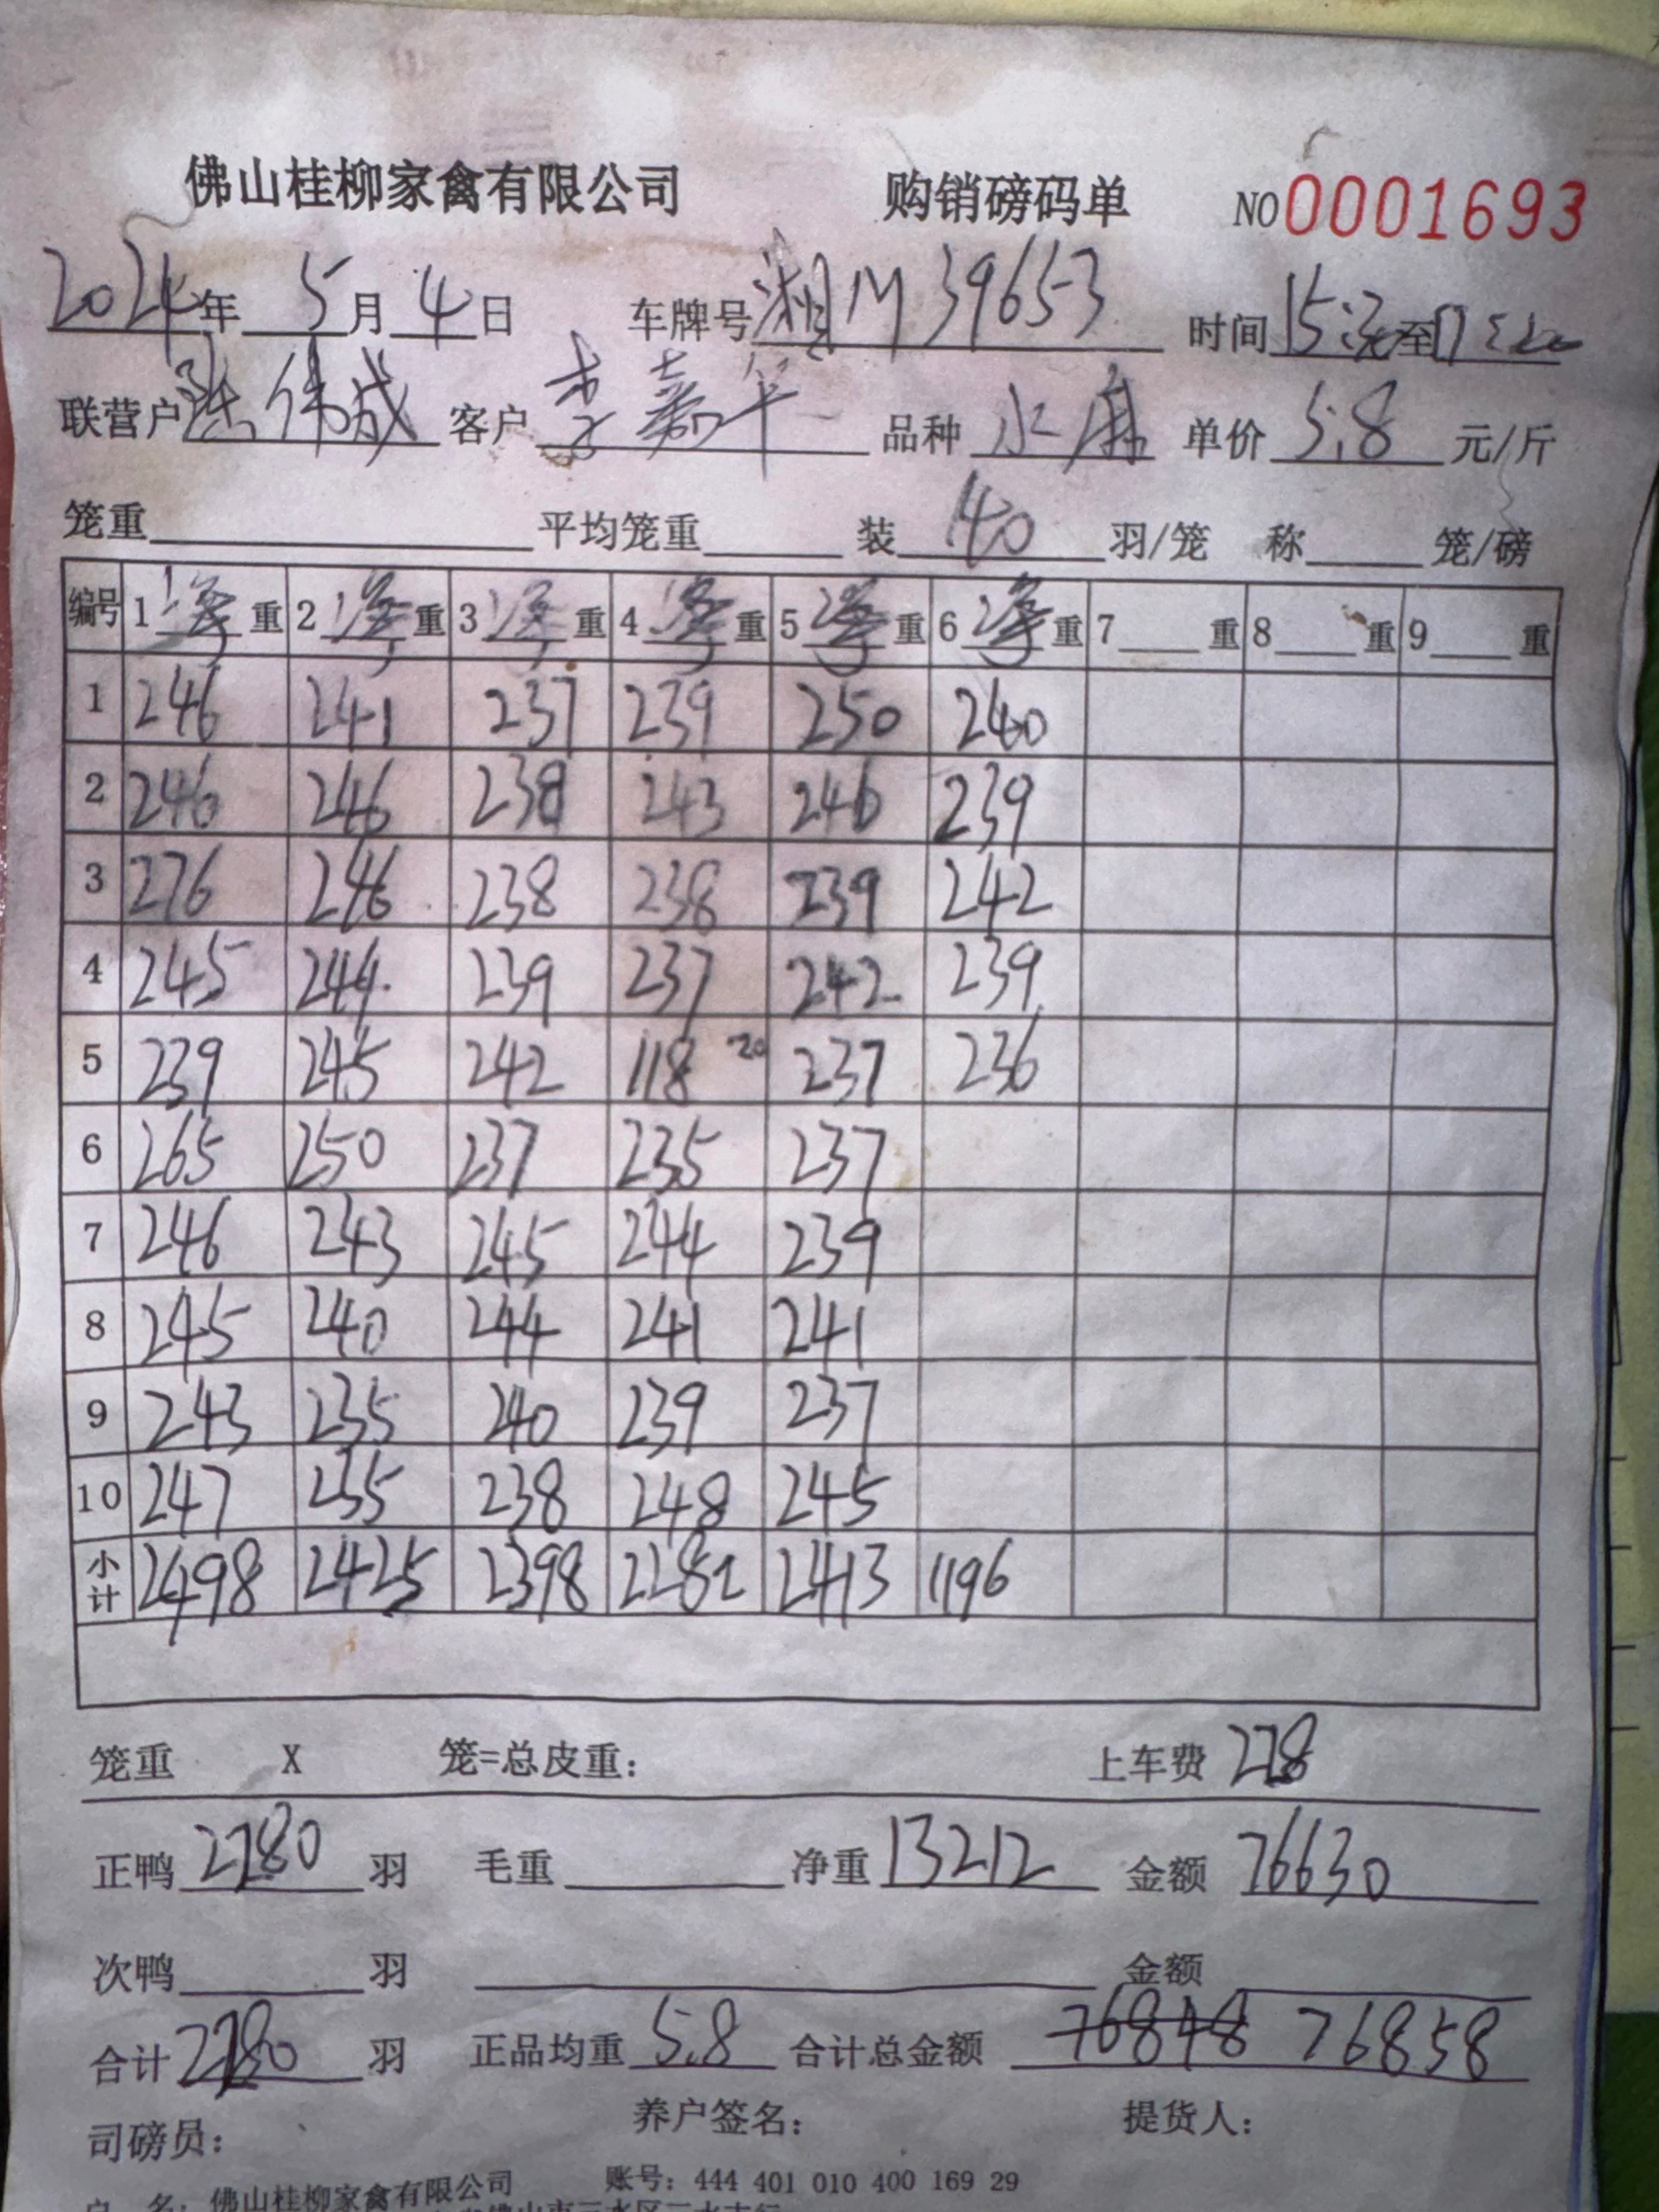 佛山桂柳家禽有限公司 购销磅码单 NO 0001693
2024年 5月 4日 车牌号 湘M 39653 时间 15: 至 17:
联营户 伟成 客户 李嘉华 品种 水麻 单价 5.8 元/斤
笼重 平均笼重 装 140 羽/笼 称 笼/磅
编号 1 净重 2 净重 3 净重 4 净重 5 净重 6 净重 7 重 8 重 9 重
1 246 241 237 239 250 240
2 246 246 238 243 246 239
3 276 246 238 238 239 242
4 245 244 239 237 242 239
5 239 245 242 118 20 237 236
6 265 250 237 235 237
7 246 243 245 244 239
8 245 240 244 241 241
9 243 235 240 239 237
10 247 235 238 248 245
小计 2498 2425 2398 2282 2413 1196
笼重 X 笼=总皮重: 上车费 228
正鸭 2280 羽 毛重 净重 13212 金额 76630
次鸭 羽 金额
合计 2280 羽 正品均重 5.8 合计总金额 76848 76858
司磅员: 养户签名: 提货人:
户 名: 佛山桂柳家禽有限公司 账号: 444 401 010 400 169 29